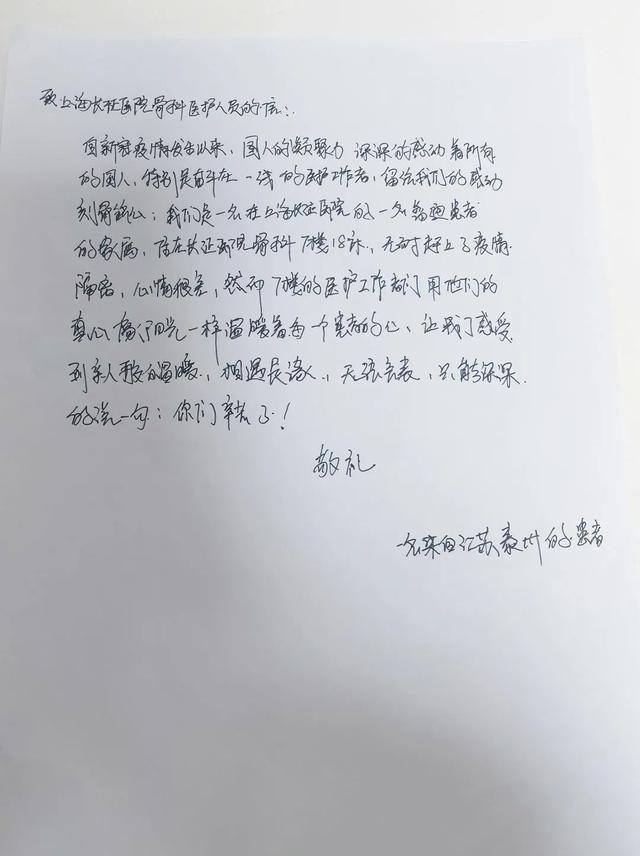 致上海长征医院骨科医护人员的信:
自新冠疫情发生以来,国人的凝聚力 深深的感动着所有
的国人,特别是奋斗在一线的医护工作者,留给我们的感动
刻骨铭心:我们是一名在上海长征医院的一名普通患者
的家属,住在长征医院骨科7楼18床,无时赶上了疫情
隔离,心情很差,然而7楼的医护工作者们用他们的
真心像阳光一样温暖着每一个患者的心,让我们感受
到亲人般的温暖,相遇是缘人,无须言表,只能深深
的说一句:你们辛苦了!
敬礼
一名来自江苏泰州的患者